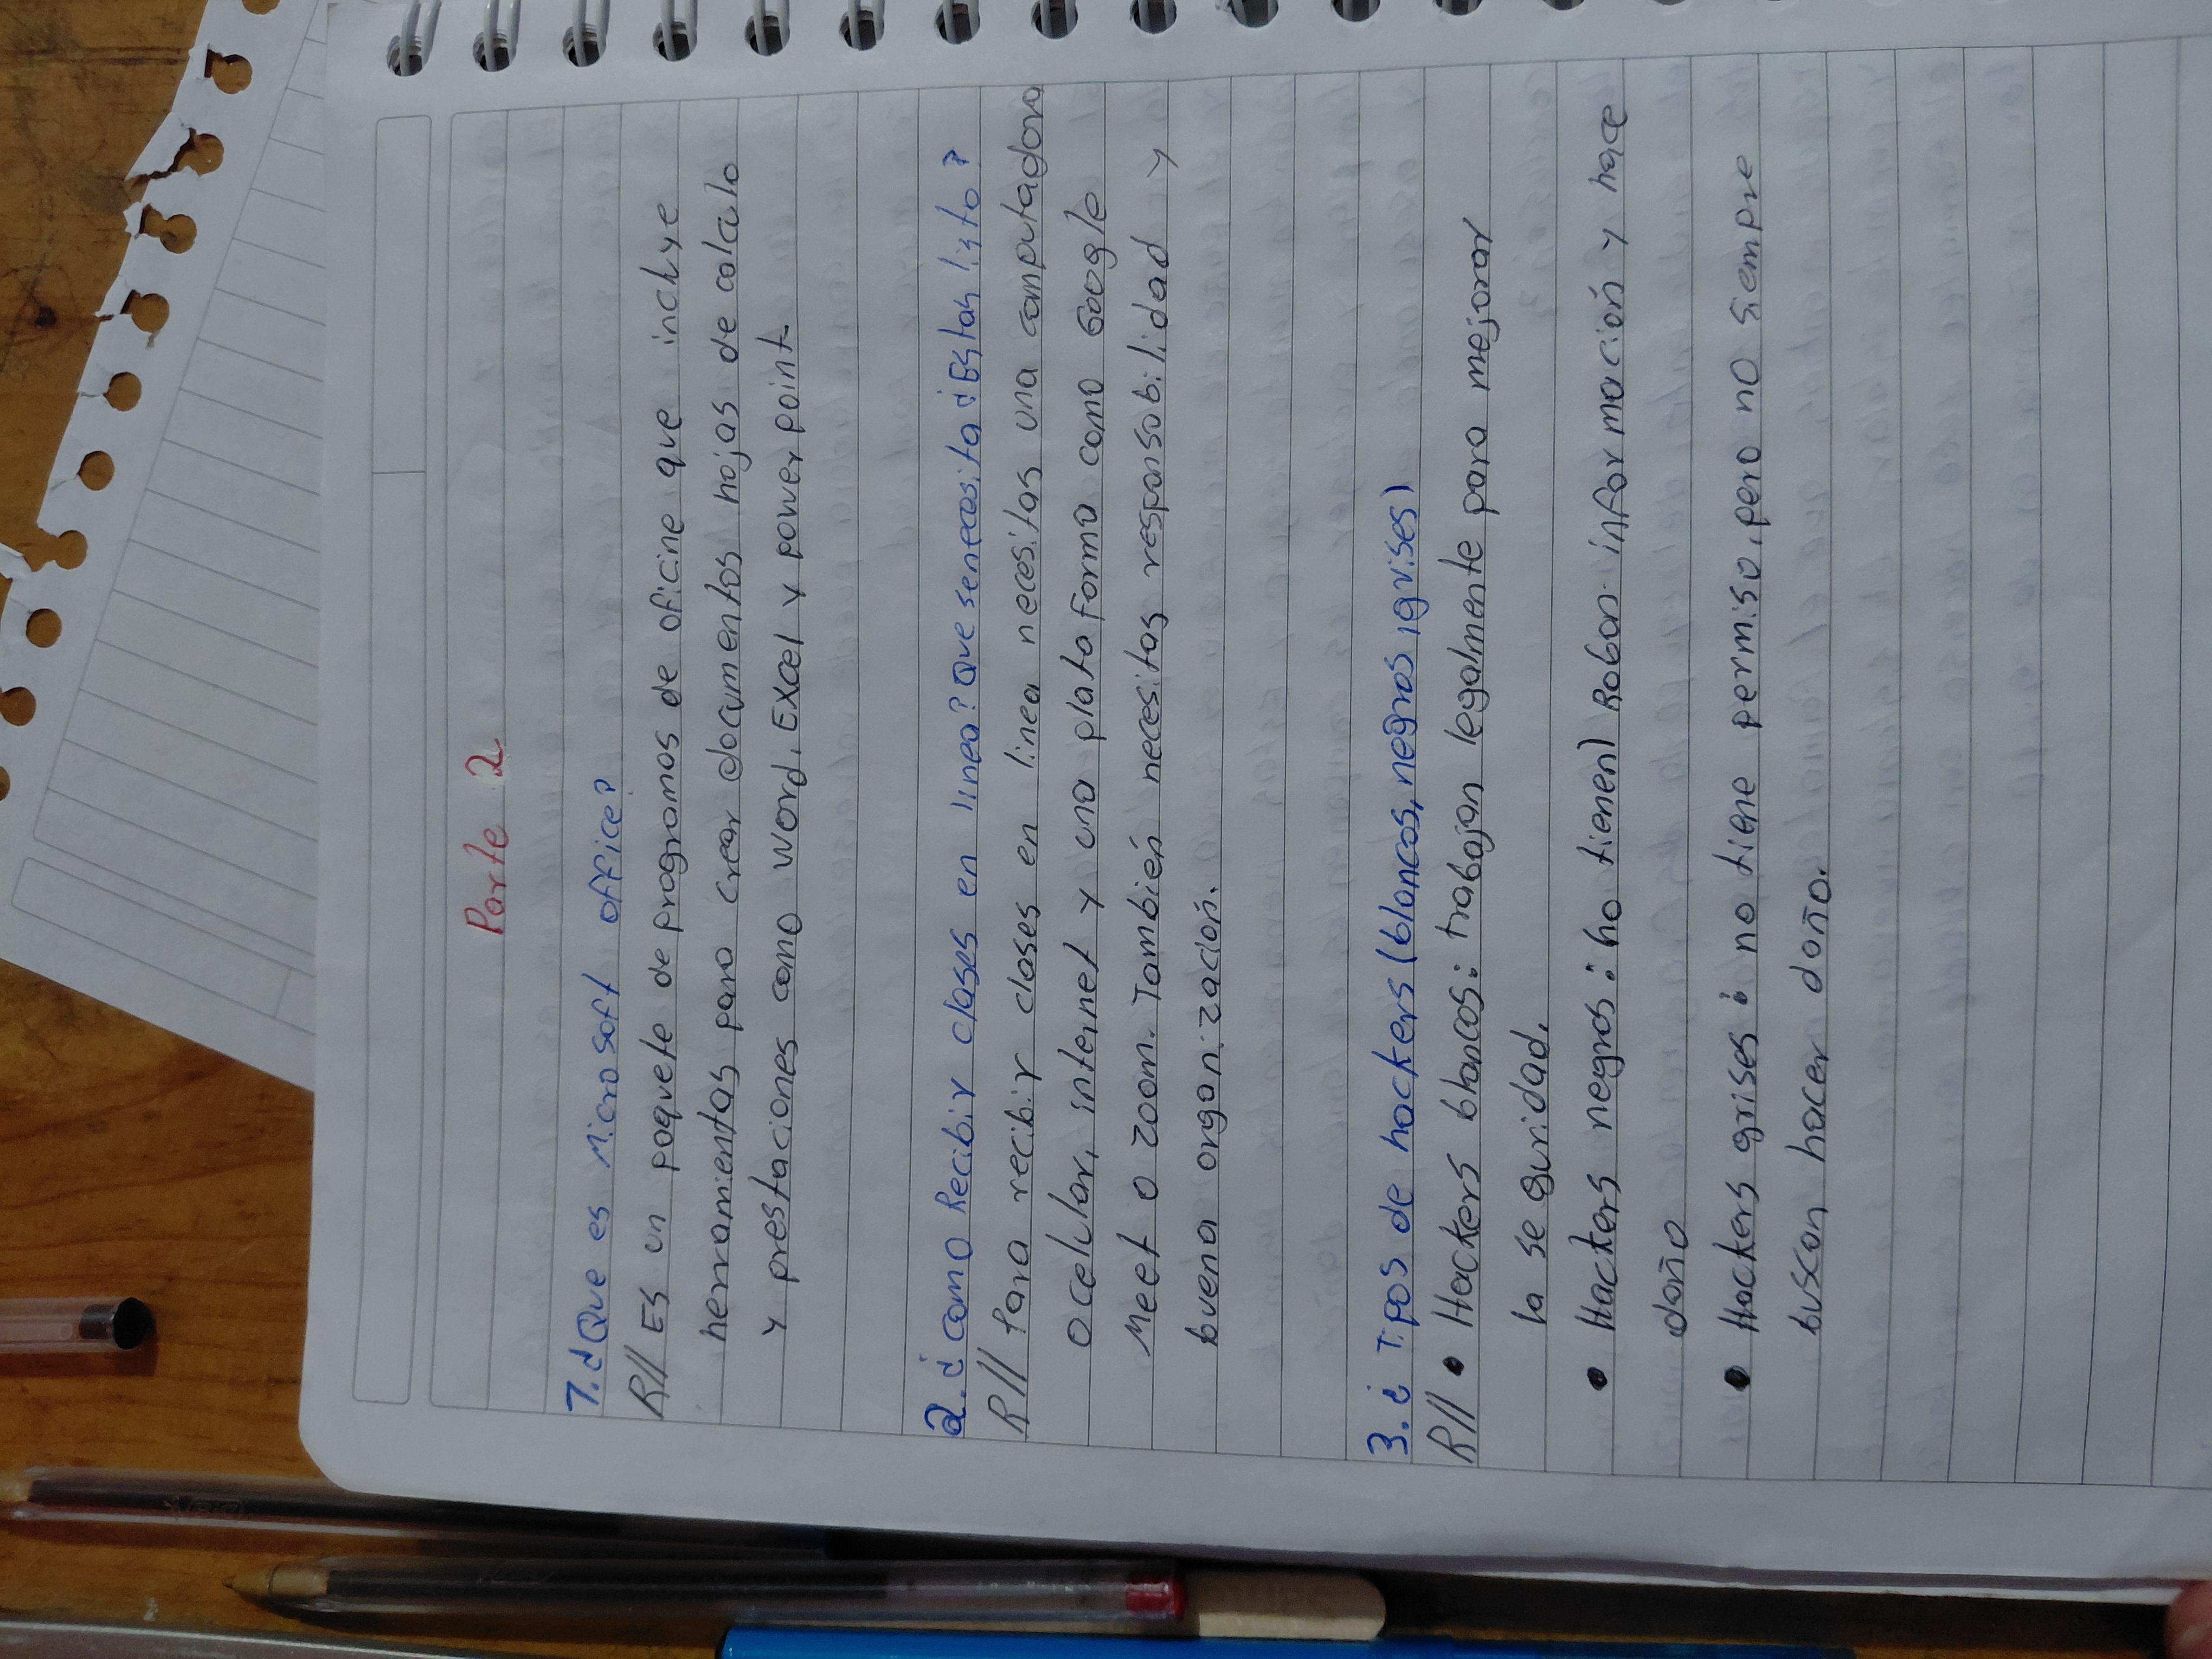 Parte 2
1. ¿Que es Microsoft office?
R// Es un paquete de programas de oficine que incluye
herramientas para crear documentos hojas de calculo
y prestaciones como word, Excel y power point.
2. ¿como Recibir clases en linea? Que senecesita ¿Estas listo?
R// Para recibir clases en linea necesitas una computadora
o celular, internet y una plata forma como Google
Meet o zoom. También necesitas responsabilidad y
buena organización.
3. ¿ Tipos de hackers (blancos, negros, grises)
R// • Hackers blancos: trabajan legalmente para mejorar
la se guridad.
• Hackers negros: no tienen) Roban información y hace
daño
• Hackers grises: no tiene permiso, pero no siempre
buscan hacer daño.